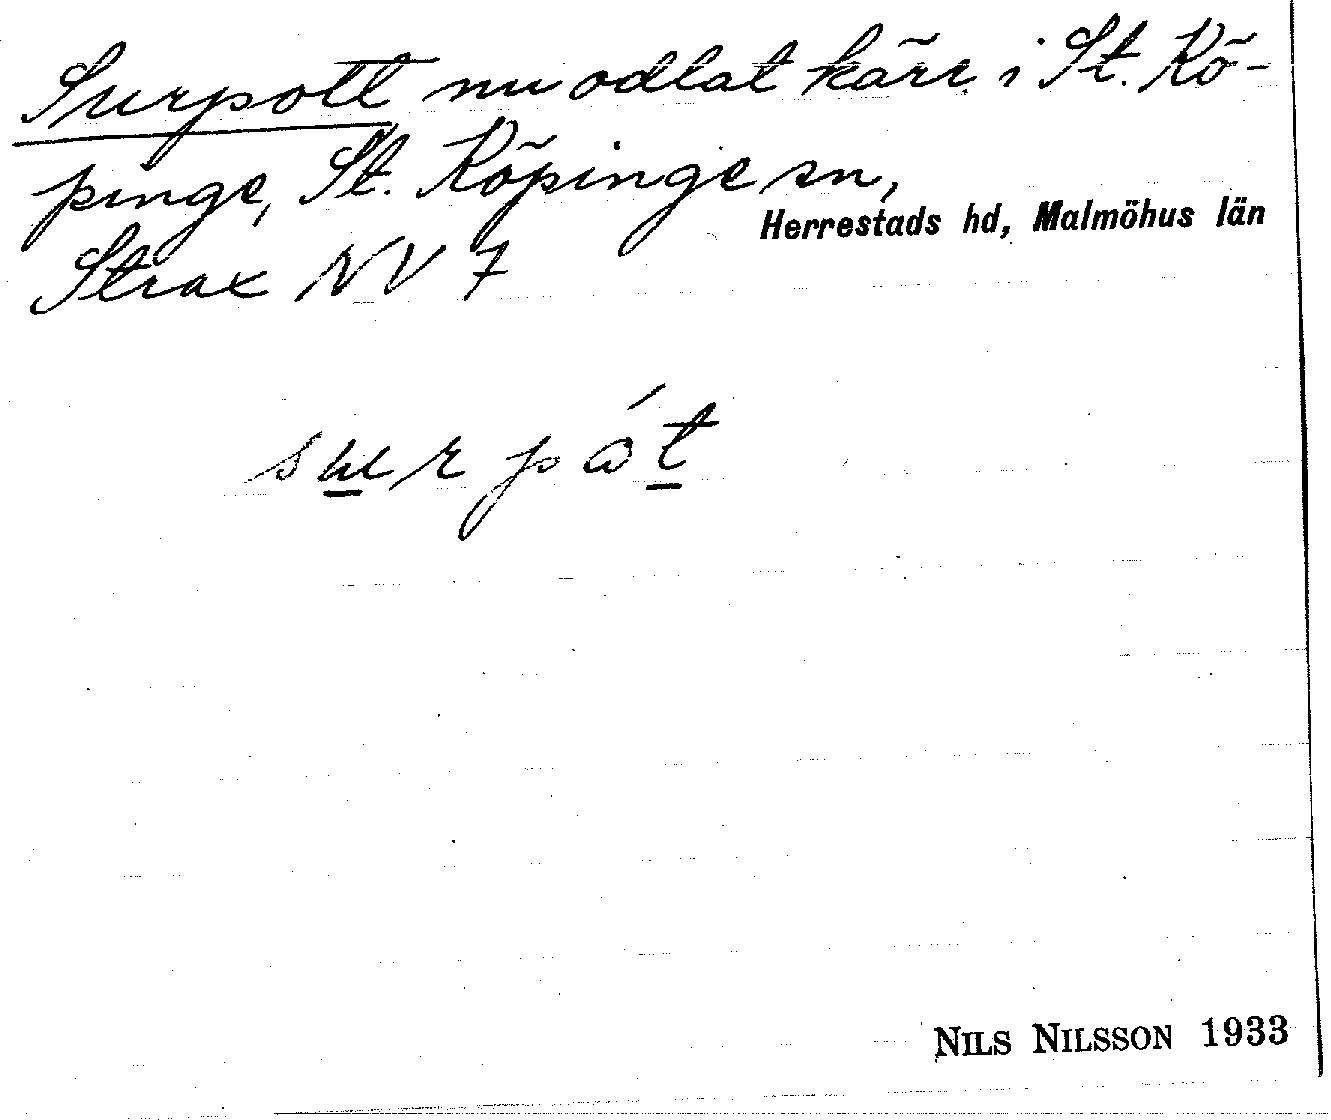 Surpott nu odlat kärr i St. Kö-
pinge, St. Köpinge sn,
Herrestads hd, Malmöhus län
Strax NV 7
surpåt́
NILS NILSSON 1933